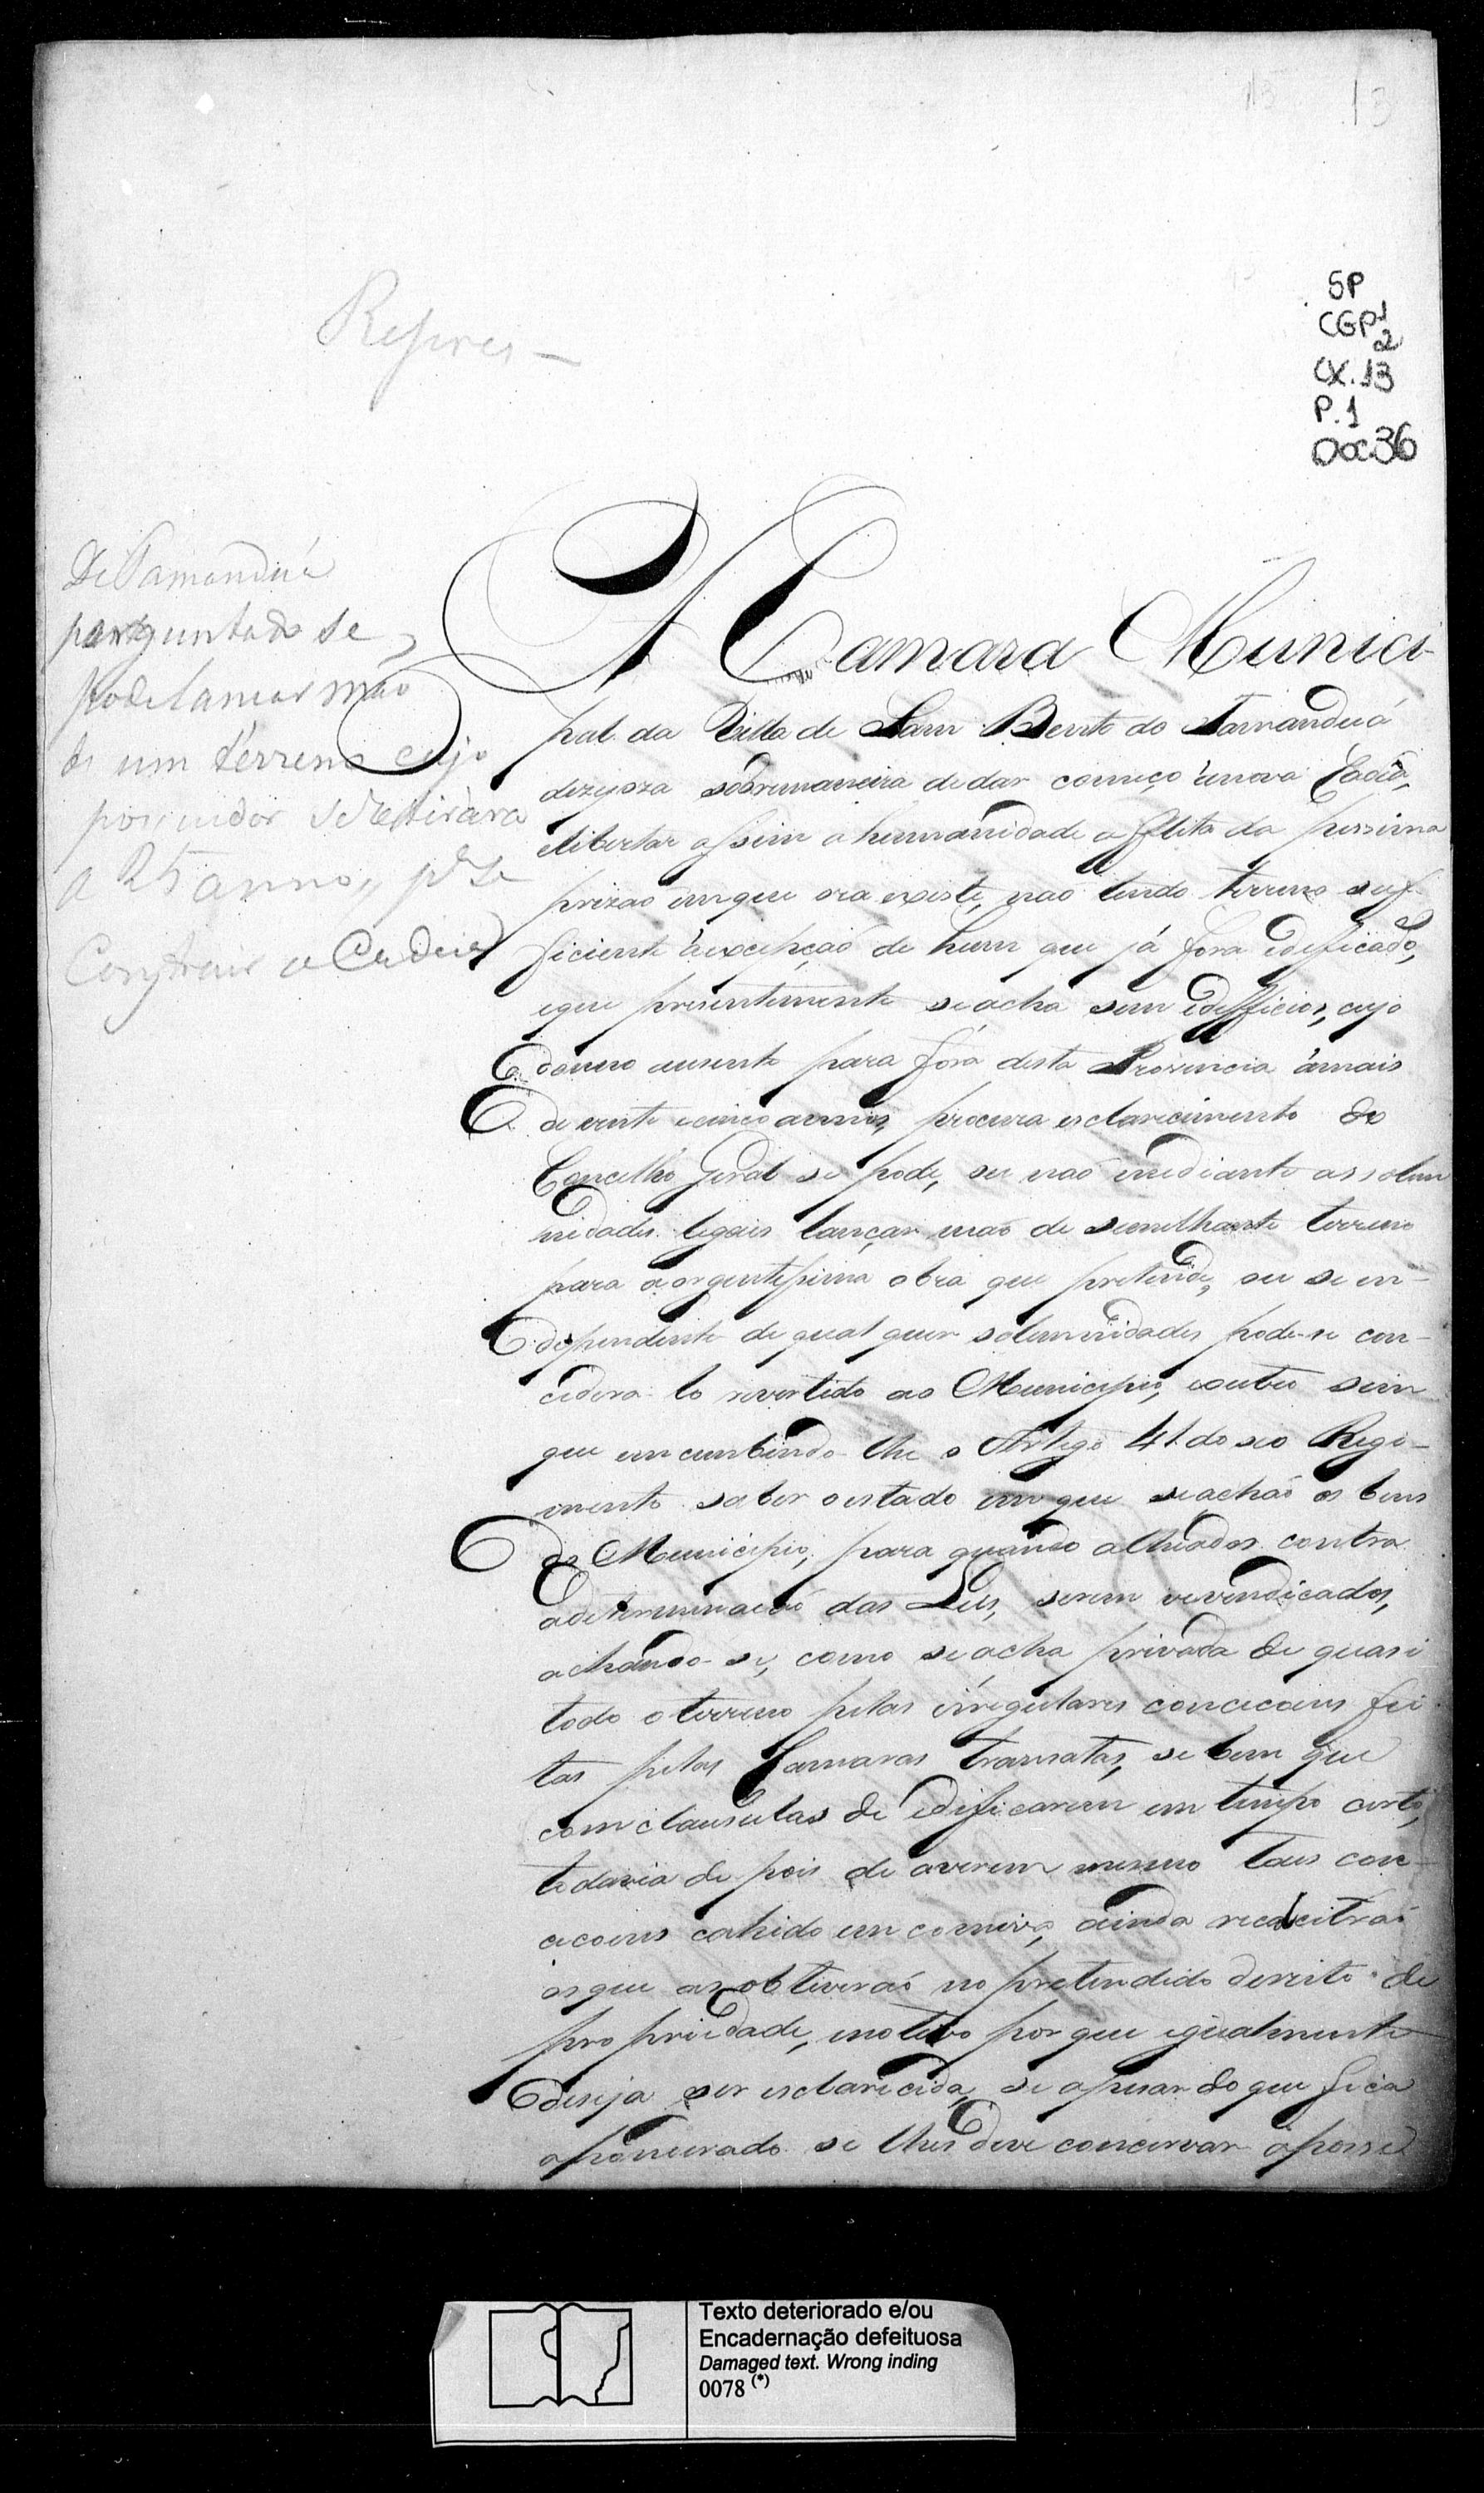 13
SP
CGP1
2
CX.13
P.1
Doc36
Repres –
De Tamanduá
perguntado se
pode lançar mão
de um terreno cujo
possuidor se retirara
a 25 annos, pª se
Construir a Cadeia
A Camara Munici-
pal da Villa de Sam Bento do Tamanduá
dezejoza sobremaneira de dar começo á nova Cadêa,
e libertar assim a humanidade aflita da pessima
prizaõ em que ora existe, naõ tendo terreno suf-
ficiente á excepçaõ de hum que já fora edificado,
e que presentemente se acha sem edifficios, cujo
donno ausente para fóra desta Provincia á mais
de vinte e cinco annos, procura esclarecimento do
Concelho Geral se pode, ou naõ mediante as solem
nidades legais lançar maõ de semilhante terreno
para a orgentissima obra que pretende, ou se in-
dependente de qual quer solemnidades pode-se con-
cidera-lo revertido ao Municipio, e outro sim
que em cumbindo-lhe o Artigo 41 do seo Regi-
mento saber o estado em que se achaõ os bens
do Municipio, para quando alheados contra
a determinaçaõ das Leis, serem revendicados,
achando-se, como se acha privada de quasi
todo o terreno pelas irregulares concecoens fei
tas pelas Camaras transatas, se bem que
com clausulas de edificarem em tempo certo,
todavia de pois de averem mesmo taes con-
cecoens cahido em comisso, ainda recalcitraõ
os que as obtiveraõ no pretendido dereito de
pro priedade, motivo por que igualmente
deseja ser esclarecida, se apesar do que fica
aponerado se lhes deve concervar a posse
Texto deteriorado e/ou
Encadernação defeituosa
Damaged text. Wrong inding
0078 (*)